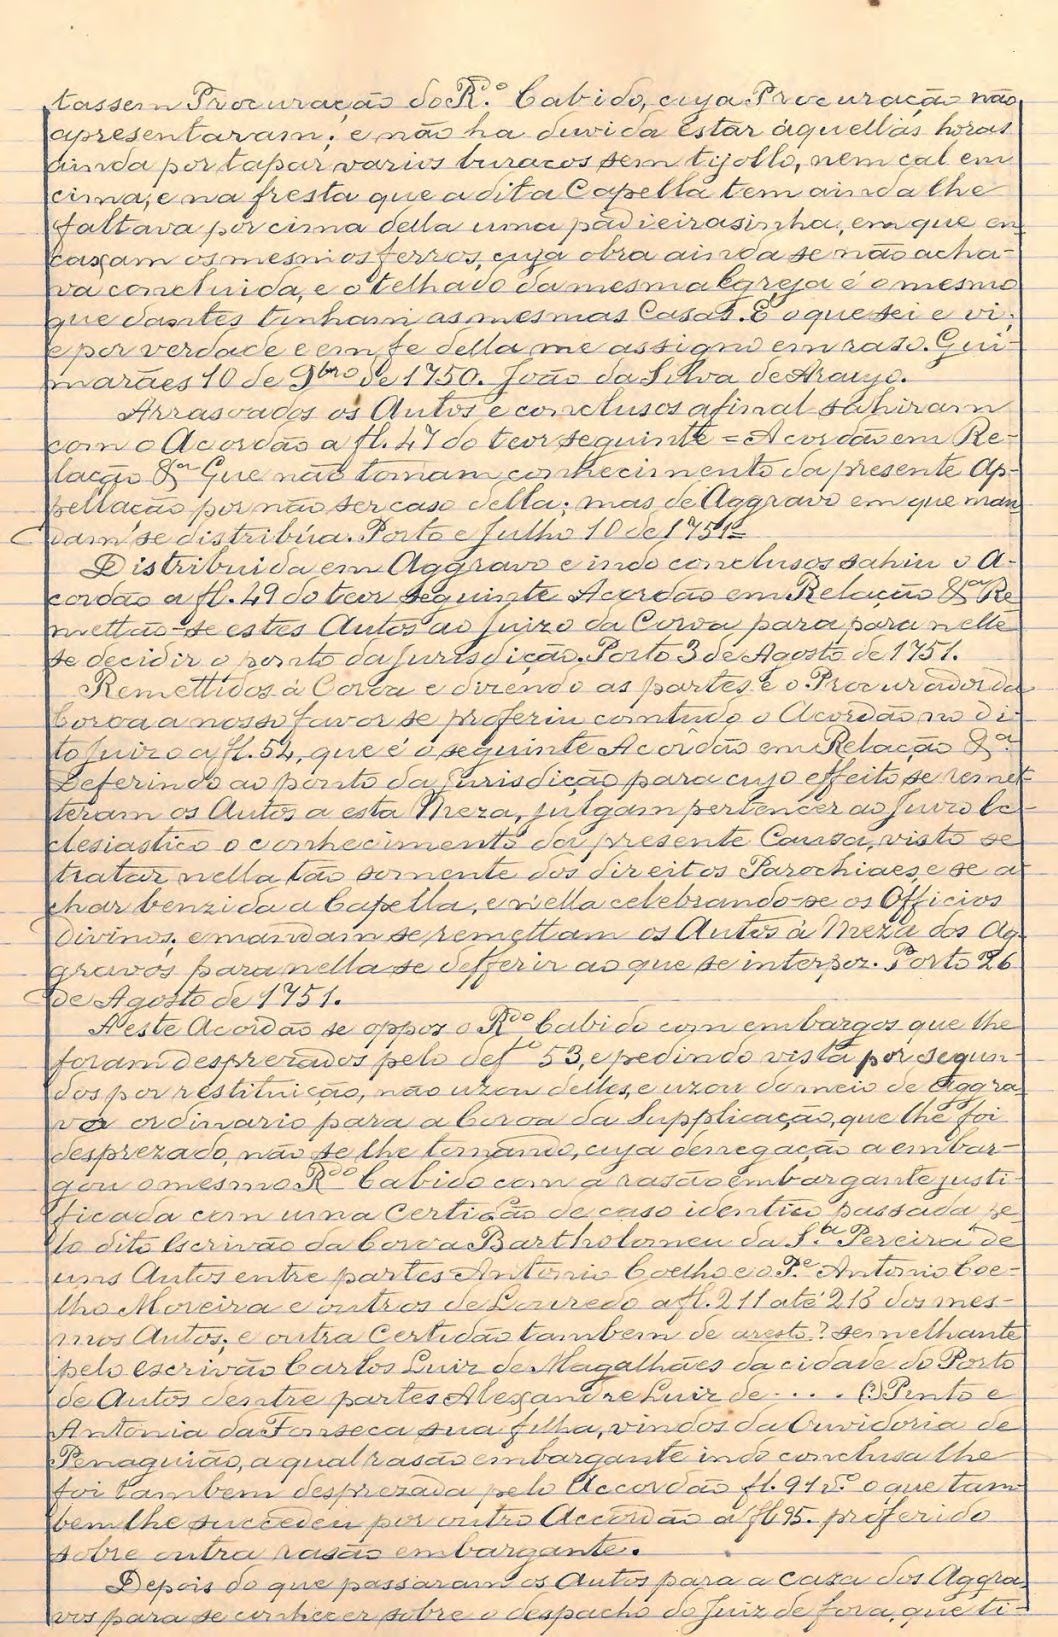 tassem Procuração do R.º Cabido, cuja Procuração não
apresentaram; e não ha duvida estar áquellas horas
ainda por tapar varios buracos sem tijollo, nem cal em
cima; e na fresta que a dita Capella tem ainda lhe
faltava por cima della uma padieirasinha, em que en
caxam os mesmos ferros, cuja obra ainda se não acha-
va concluida, e o telhado da mesma Egreja é o mesmo
que dantes tinham as mesmas Casas. E o que sei e vi,
e por verdade e em fe della me assigno em raso. Gui-
marães 10 de 9bro de 1750. João da Silva de Araujo.
Arrasoados os Autos e conclusos afinal sahiram
com o Acordão a fl. 47 do teor seguinte = Acordão em Re-
lação &ª Que não tomam conhecimento da presente Ap-
pellação por não ser caso della; mas de Aggravo em que man
dam se distribúa. Porto e Julho 10 de 1751=
Distribuida em Aggravo e indo conclusos sahiu o A-
cordão a fl. 49 do teor seguinte Acordão em Relação &ª Re
mettão-se estes Autos ao Juizo da Coroa para para nelle
se decidir o ponto da Jurisdição. Porto 3 de Agosto de 1751.
Remettidos á Coroa e dizendo as partes e o Procurador da
Coroa a nosso favor se proferiu comtudo o Acordão no di-
to Juizo a fl. 52, que é o seguinte Acordão em Relação &ª
Deferindo ao ponto da Jurisdição para cujo effeito se remet-
teram os Autos a esta Meza, julgam pertencer ao Juizo Ec-
clesiastico o conhecimento da presente Causa, visto se
tratar nella tão somente dos direitos Parochiaes, e se a
char benzida a Capella, e n'ella celebrando-se os Officios
Divinos; e mandam se remettam os Autos á Meza dos Ag-
gravos para nella se defferir ao que se interpoz. Porto 26
de Agosto de 1751.
A este Acordão se oppos o Rdo Cabido com embargos que lhe
foram desprezados pelo de fº 53, e pedindo vista por segun-
dos por restituição, não uzou delles, e uzou do meio de Aggra-
vo ordinario para a Coroa da Supplicação, que lhe foi
desprezado, não se lhe tomando, cuja denegação a embar-
gou o mesmo Rdo Cabido com a rasão embargante justi-
ficada com uma Certidão de caso identico passada pe-
lo dito Escrivão da Coroa Bartholomeu da S.ª Pereira de
uns Autos entre partes Antonio Coelho e o P.e Antonio Coe-
lho Moreira e outros de Louredo a fl. 211 até 213 dos mes-
mos Autos; e outra Certidão tambem de aresto? semelhante
pelo escrivão Carlos Luiz de Magalhães da cidade do Porto
de Autos dentre partes Alexandre Luiz de . . . . (?) Pinto e
Antonia da Fonseca sua filha, vindos da Ouvidoria de
Penaguião, a qual rasão embargante indo conclusa lhe
foi tambem desprezada pelo Accordão fl. 91 v.º o que tam-
bem lhe succedeu por outro Accordão a fl 95. proferido
sobre outra rasão embargante.
Depois do que passaram os Autos para a caza dos Aggra-
vos para se conhecer sobre o despacho do Juiz de fora, que ti-